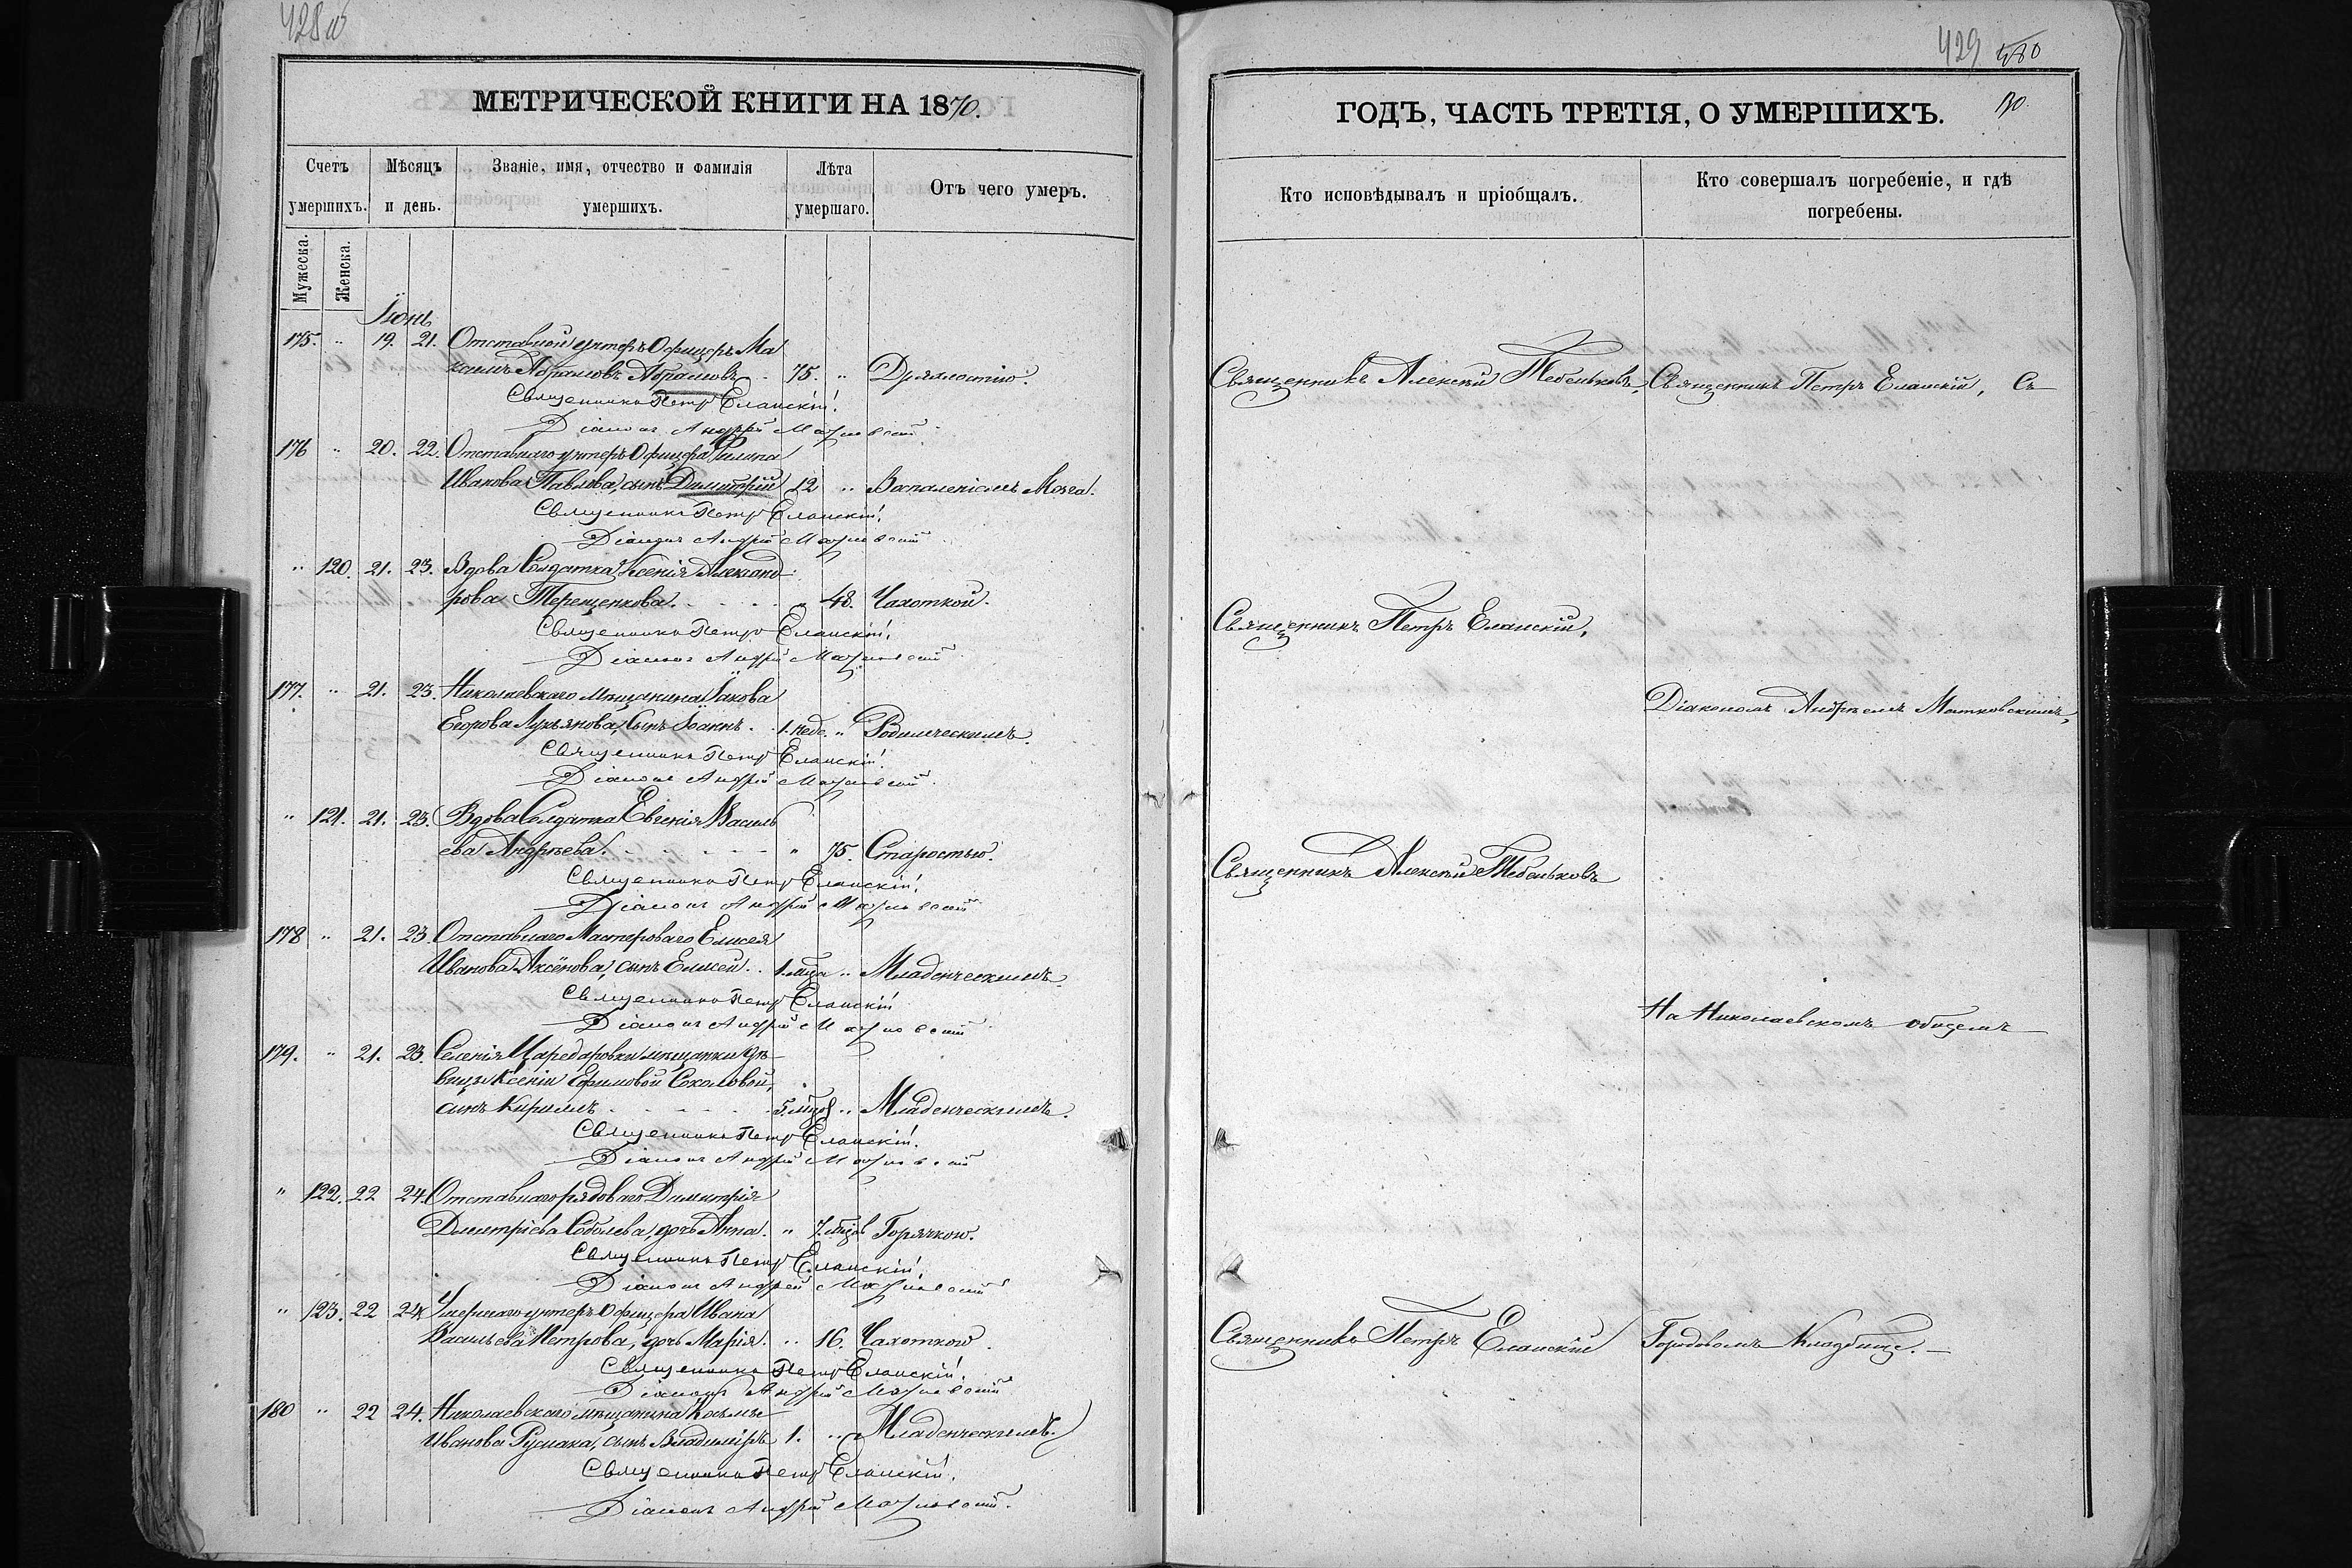 428 об
МЕТРИЧЕСКОЙ КНИГИ НА 1870.
Счетъ умершихъ.
Мѣсяцъ и день.
Званіе, имя, отчество и фамилія умершихъ.
Лѣта умершаго.
Отъ чего умеръ.
Мужеска.
Женска.
Іюнь
175. " 19. 21. Отставной унтеръ Офицеръ Ма
ксимъ Абрамовъ Абрамовъ. 75. " Дряхлостію.
Священникъ Петръ Еланскій.
Діаконъ Андрей Матковскій.
176 " 20. 22. Отставнаго унтеръ Офицера Филипа
Иванова Павлова, сынъ Димитрій 12 " Воспаленіемъ Мозга.
Священникъ Петръ Еланскій.
Діаконъ Андрей Матковскій
" 120. 21. 23. Вдова Солдатка Ксенія Александ
рова Терещенкова. " 48. Чахоткой.
Священникъ Петръ Еланскій.
Діаконъ Андрей Матковскій
177. " 21. 23. Николаевскаго мѣщанина Іакова
Егорова Лукьянова, сынъ Іоаннъ. 1. нед. " Родимческимъ.
Священникъ Петръ Еланскій.
Діаконъ Андрей Матковскій
" 121. 21. 23. Вдова Солдатка Евгенія Василь
ева Андреева. " 75. Старостью.
Священникъ Петръ Еланскій.
Діаконъ Андрей Матковскій
178 " 21. 23 Отставнаго Мастероваго Елисея
Иванова Аксёнова, сынъ Елисей. 1. мца " Младенческимъ
Священникъ Петръ Еланскій
Діаконъ Андрей Матковскій
179. " 21. 23. Селенія Царедаровки мѣщанки дѣ
вицы Ксеніи Ефимовой Соколовой,
сынъ Кириллъ 5. мцов " Младенческимъ.
Священникъ Петръ Еланскій.
Діаконъ Андрей Матковскій
" 122. 22 24. Отставнаго рядоваго Димитрія
Димитріева Соболева, дочь Анна. " 7. мцов Горячкою.
Священникъ Петръ Еланскій
Діаконъ Андрей Матковскій
" 123. 22 24 Умершаго унтеръ Офицера Ивана
Васильева Петрова, дочь Марія. " 16. Чахоткою.
Священникъ Петръ Еланскій.
Діаконъ Андрей Матковскій
180 " 22 24. Николаевскаго мѣщанина Косьмы
Иванова Русиака, сынъ Владиміръ 1. " Младенческимъ.
Священникъ Петръ Еланскій.
Діаконъ Андрей Матковскій.
429
130
ГОДЪ, ЧАСТЬ ТРЕТІЯ, О УМЕРШИХЪ.
Кто исповѣдывалъ и пріобщалъ.
Кто совершалъ погребеніе, и гдѣ погребены.
Священникъ Алексій Тебеньковъ. Священникъ Петръ Еланскій, Съ
Священникъ Петръ Еланскій.
Діакономъ Андреемъ Матковскимъ,
Священникъ Алексій Тебеньковъ
На Николаевскомъ общемъ
Священникъ Петръ Еланскій Городовомъ Кладбище.